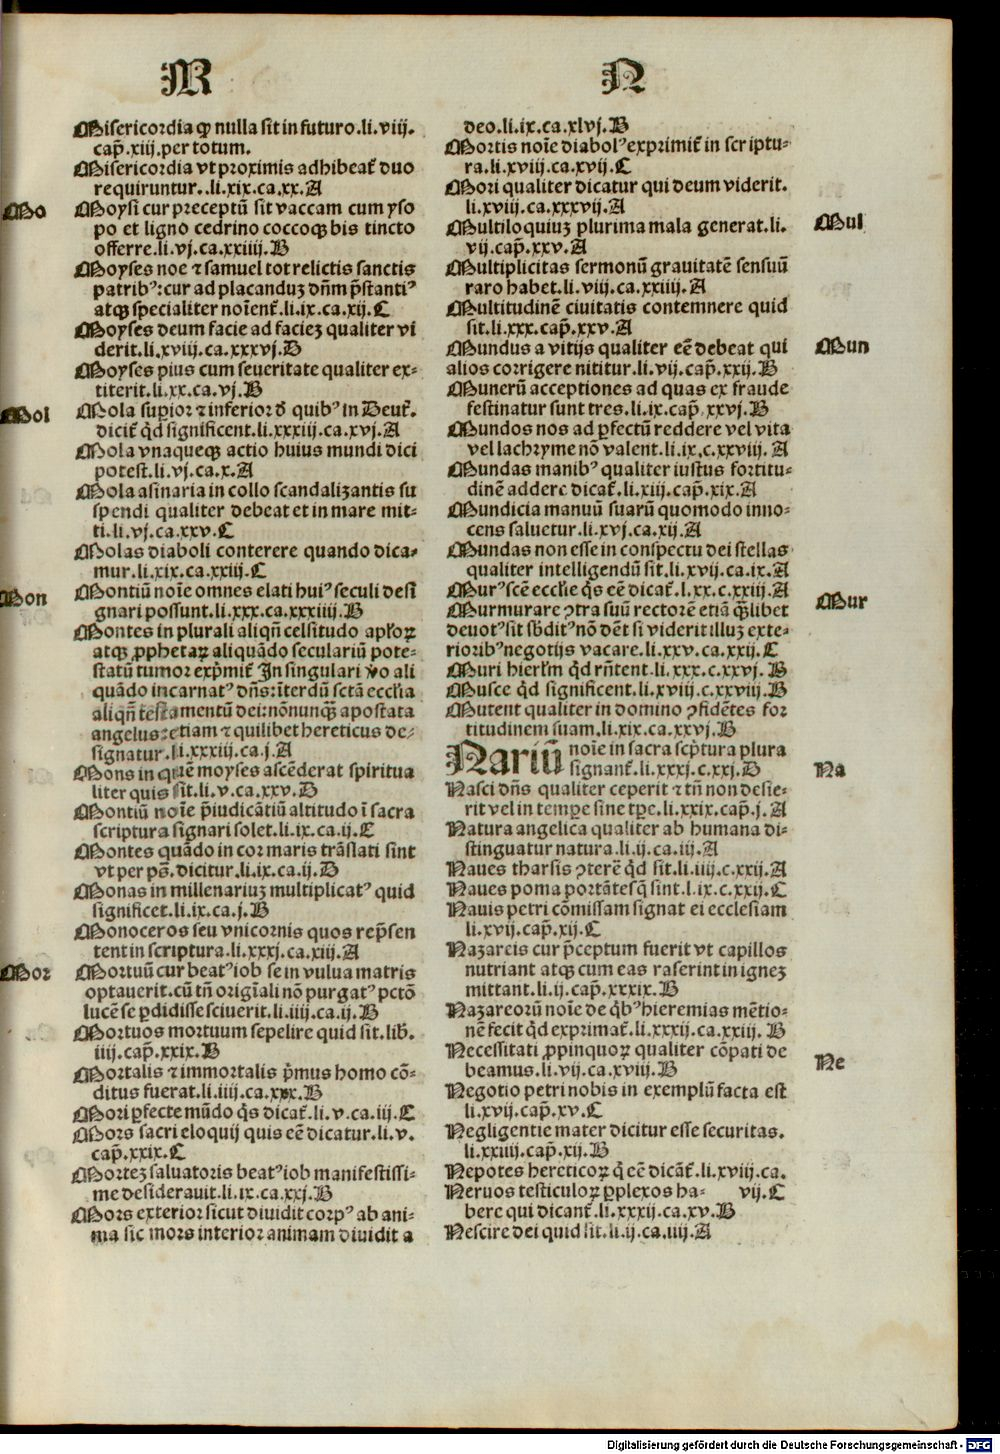 M
N
Misericordia ꝙ nulla sit in futuro.li.viij.
cap̄.xiij.per totum.
Misericordia vt proximis adhibeat᷑ duo
requiruntur..li.xix.ca.xx.A
Mo
Moysi cur preceptū sit vaccam cum yso
po et ligno cedrino coccoqꝫ bis tincto
offerre.li.vj.ca.xxiiij.B
Moyses noe ⁊ samuel tot relictis sanctis
patribꝰ:cur ad placanduꝫ dn̄m p̄stantiꝰ
atqꝫ specialiter noīent᷑.li.ix.ca.xij.C
Moyses deum facie ad facieꝫ qualiter vi
derit.li.xviij.ca.xxxvj.D
Moyses pius cum seueritate qualiter ex-
titerit.li.xx.ca.vj.B
Mol
Mola supior ⁊ inferior ꝺ̄ quibꝰ in Deut᷑.
dicit᷑ qd̄ significent.li.xxxiij.ca.xvj.A
Mola vnaqueqꝫ actio huius mundi dici
potest.li.vj.ca.x.A
Mola asinaria in collo scandalizantis su
spendi qualiter debeat et in mare mit-
ti.li.vj.ca.xxv.C
Molas diaboli conterere quando dica-
mur.li.xix.ca.xxiij.C
Mon
Montiū noīe omnes elati huiꝰ seculi desi
gnari possunt.li.xxx.ca.xxxiiij.B
Montes in plurali aliqn̄ celsitudo apl̓oꝝ
atqꝫ ꝓphetaꝝ aliquādo seculariū pote-
statū tumor exp̄mit᷑ In singulari v̓o ali
quādo incarnatꝰ dn̄s:īterdū sctā eccl̓ia
aliqn̄ testamentū dei:nōnunqꝫ apostata
angelus:etiam ⁊ quilibet hereticus de-
signatur.li.xxxiij.ca.j.A
Mons in quē moyses ascēderat spiritua
liter quis sit.li.v.ca.xxv.D
Montiū noīe p̄iudicātiū altitudo ī sacra
scriptura signari solet.li.ix.ca.ij.C
Montes quādo in cor maris trāslati sint
vt per ps̄.dicitur.li.ix.ca.ij.D
Monas in millenariuꝫ multiplicatꝰ quid
significet.li.ix.ca.j.B
Monoceros seu vnicornis quos rep̄sen
tent in scriptura.li.xxxj.ca.xiij.A
Mor
Mortuū cur beatꝰ iob se in vulua matris
optauerit.cū tn̄ origīali nō purgatꝰ pctō
lucē se ꝑdidisse sciuerit.li.iiij.ca.ij.B
Mortuos mortuum sepelire quid sit.lib̓.
iiij.cap̄.xxix.B
Mortalis ⁊ immortalis p̄mus homo cō-
ditus fuerat.li.iiij.ca.xxx.B
Mori ꝑfecte mūdo qs̄ dicat᷑.li.v.ca.iij.C
Mors sacri eloquij quis eē dicatur.li.v.
cap̄.xxix.C
Morteꝫ saluatoris beatꝰ iob manifestissi-
me desiderauit.li.ix.ca.xxj.B
Mors exterior sicut diuidit corpꝰ ab ani-
ma sic mors interior animam diuidit a
deo.li.ix.ca.xlvj.B
Mortis noīe diabolꝰ exprimit᷑ in scriptu-
ra.li.xviij.ca.xvij.C
Mori qualiter dicatur qui deum viderit.
li.xviij.ca.xxxvij.A
Mul
Multiloquiuꝫ plurima mala generat.li.
vij.cap̄.xxv.A
Multiplicitas sermonū grauitatē sensuū
raro habet.li.viij.ca.xxiiij.A
Multitudinē ciuitatis contemnere quid
sit.li.xxx.cap̄.xxv.A
Mun
Mundus a vitijs qualiter eē debeat qui
alios corrigere nititur.li.vij.cap̄.xxij.B
Munerū acceptiones ad quas ex fraude
festinatur sunt tres.li.ix.cap̄.xxvj.B
Mundos nos ad ꝑfectū reddere vel vita
vel lachryme nō valent.li.ix.c.xxviij.A
Mundas manibꝰ qualiter iustus fortitu-
dinē addere dicat᷑.li.xiij.cap̄.xix.A
Mundicia manuū suarū quomodo inno-
cens saluetur.li.xvj.ca.xij.A
Mundas non esse in conspectu dei stellas
qualiter intelligendū sit.li.xvij.ca.ix.A
Mur
Murꝰ scē eccl̓ie qs̄ eē dicat᷑.l.xx.c.xxiij.A
Murmurare ꝯtra suū rectorē etiā qꝫlibet
deuotꝰ sit sb̄ditꝰ nō dēt si viderit illuꝫ exte-
rioribꝰ negotijs vacare.li.xxv.ca.xxij.C
Muri hierl̓m qd̄ rn̄tent.li.xxx.c.xxvj.B
Musce qd̄ significent.li.xviij.c.xxviij.B
Mutent qualiter in domino ꝯfidētes for
titudinem suam.li.xix.ca.xxvj.B
Na
Nariū noīe in sacra scp̄tura plura
signant᷑.li.xxxj.c.xxj.D
Nasci dn̄s qualiter ceperit ⁊ tn̄ non desie-
rit vel in tempe sine tꝑe.li.xxix.cap̄.j.A
Natura angelica qualiter ab humana di-
stinguatur natura.li.ij.ca.iij.A
Naues tharsis ꝯterē qd̄ sit.li.iiij.c.xxij.A
Naues poma portātesqꝫ sint.l.ix.c.xxij.C
Nauis petri cōmissam signat ei ecclesiam
li.xvij.cap̄.xij.C
Nazareis cur p̄ceptum fuerit vt capillos
nutriant atqꝫ cum eas raserint in igneꝫ
mittant.li.ij.cap̄.xxxix.B
Nazareorū noīe de qb̄ꝰ hieremias mētio-
nē fecit qd̄ exprimat᷑.li.xxxij.ca.xxiij.B
Ne
Necessitati ꝓpinquoꝝ qualiter cōpati de
beamus.li.vij.ca.xviij.B
Negotio petri nobis in exemplū facta est
li.xvij.cap̄.xv.C
Negligentie mater dicitur esse securitas.
li.xxiiij.cap̄.xij.B
Nepotes hereticoꝝ q̄ eē dicāt᷑.li.xviij.ca.
Neruos testiculoꝝ ꝑplexos ha- vij.C
bere qui dicant᷑.li.xxxij.ca.xv.B
Nescire dei quid sit.li.ij.ca.iiij.A
Digitalisierung gefördert durch die Deutsche Forschungsgemeinschaft - DFG